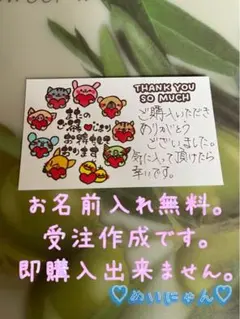 THANK YOU
SO MUCH
またの
ご来店
お待ちして
おります
ご購入いただき
ありがとう
ございました。
気に入って頂けたら
幸いです。
お名前入れ無料。
受注作成です。
即購入出来ません。
♡めいにゃん♡